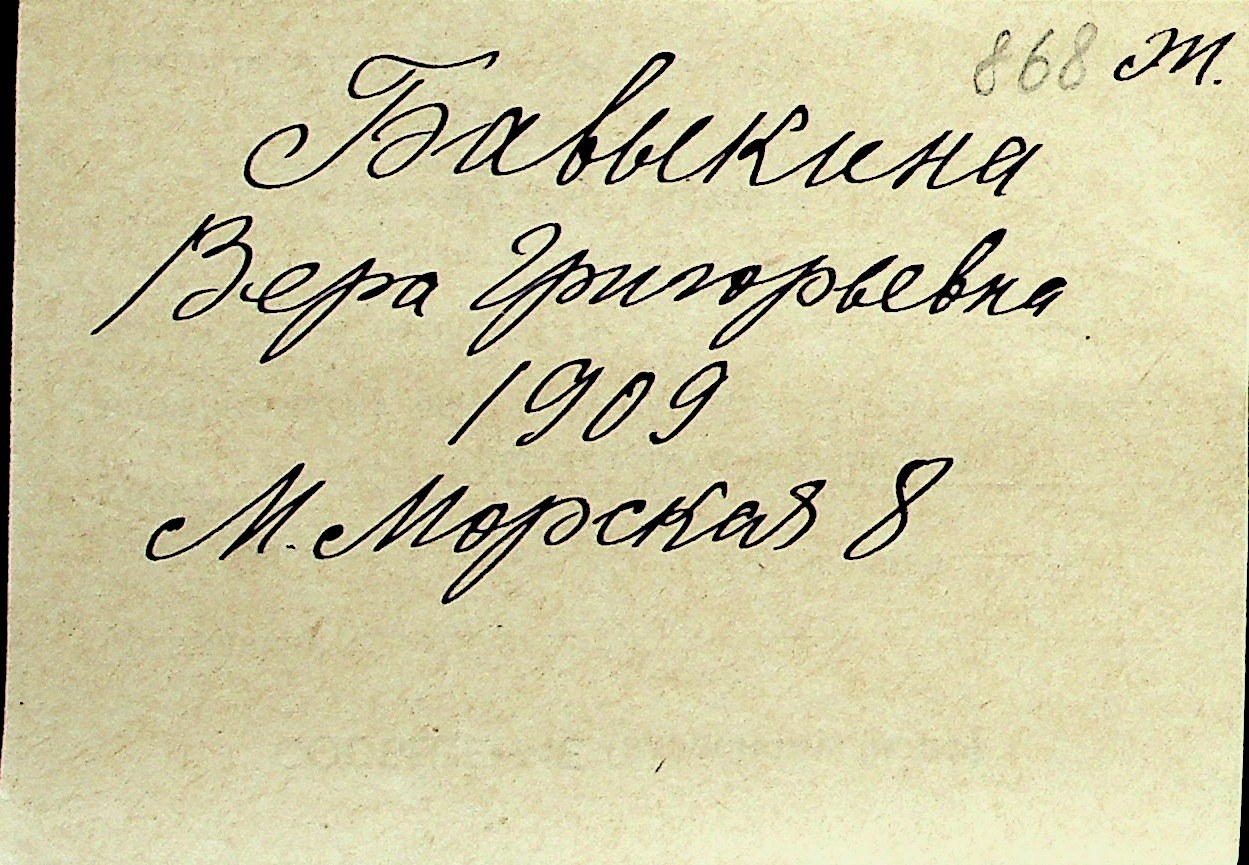 868 т.
Бавыкина
Вера Григорьевна
1909
М. Морская 8